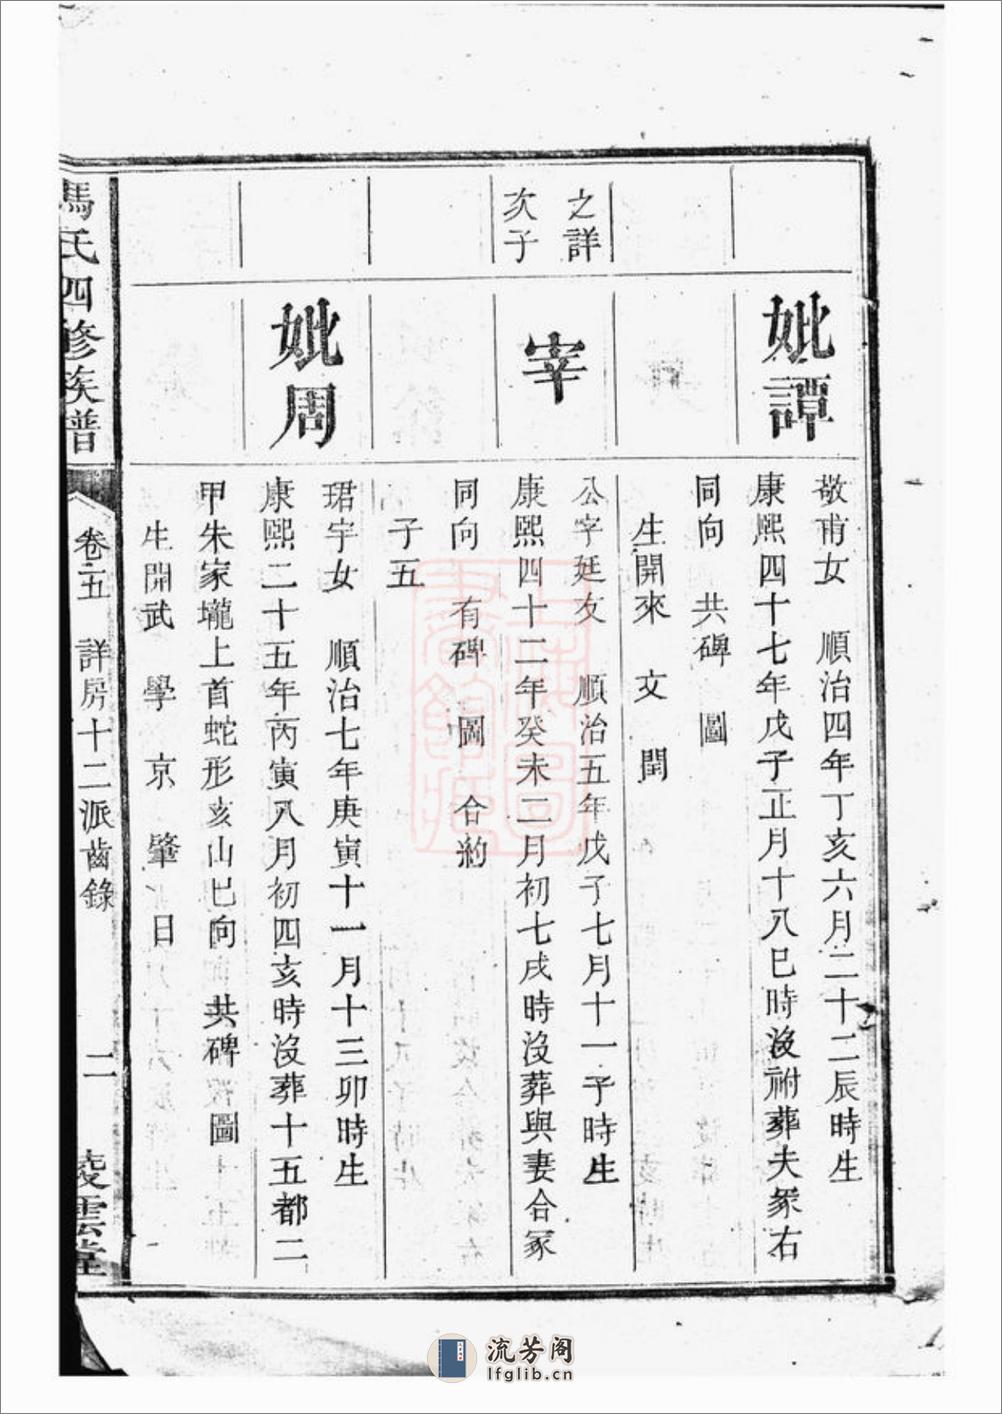 妣譚
敬甫女　順治四年丁亥六月二十二辰時生
康熙四十七年戊子正月十八巳時沒祔葬夫冢右
同向　共碑　圖
生開來　文　閏
之詳
次子
宰
公字廷友　順治五年戊子七月十一子時生
康熙四十二年癸未二月初七戌時沒葬與妻合冢
同向　有碑　圖　合約
子五
妣周
珺宇女　順治七年庚寅十一月十三卯時生
康熙二十五年丙寅八月初四亥時沒葬十五都二
甲朱家壠上首蛇形亥山巳向　共碑　圖
生開武　學　京　肇　日
馮氏四修族譜
卷之五　詳房十二派齒錄　二
凌雲堂
上海圖
書館藏
流芳阁
lfglib.cn